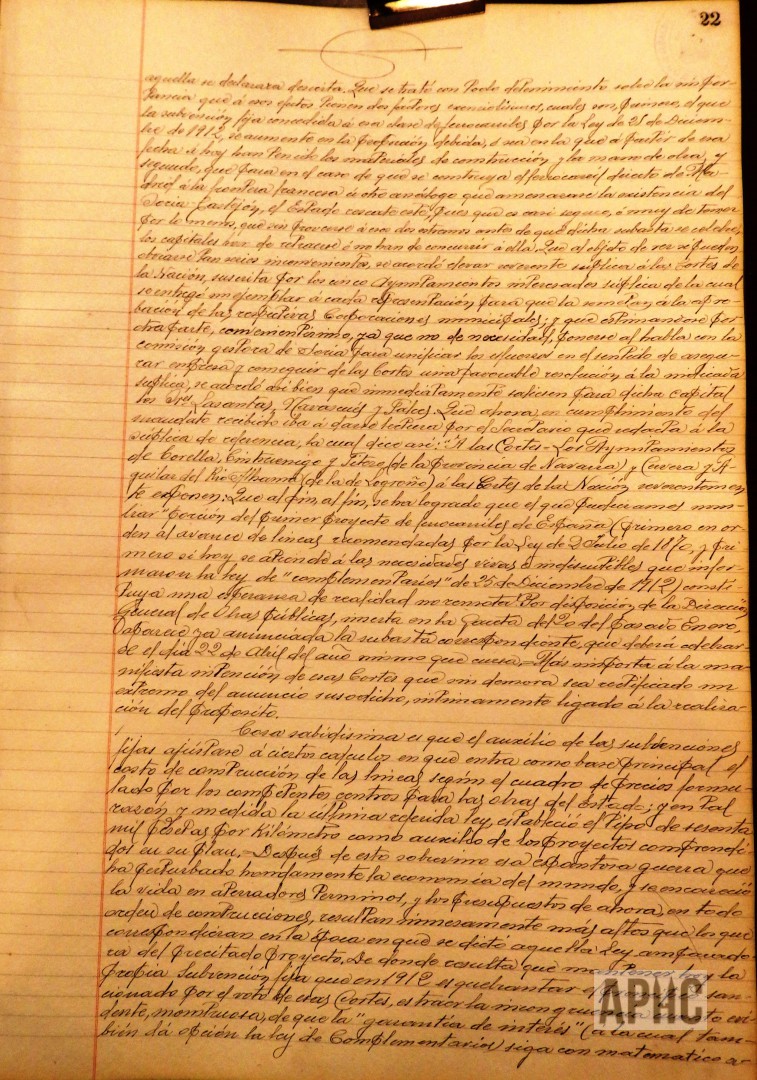 22
aquella se declarara desierta. Que se trató con todo detenimiento sobre la impor-
tancia que á esos efectos tienen dos factores esencialísimos, cuales son, primero, el que
la subvención fija concedida á esa clase de ferrocarriles por la Ley de 25 de Diciem-
bre de 1912, se aumente en la proporción debida, ó sea en la que á partir de esa
fecha á hoy han tenido los materiales de construcción y la mano de obra, y
segundo, que para en el caso de que se construya el ferrocarril directo de Ma-
drid á la frontera francesa ú otro análogo que amenazase la existencia del
Soria-Castejón, el Estado rescate este, pues que es casi seguro, ó muy de temer
por lo menos, que sin proveerse á esos dos extremos antes de que dicha subasta se celebre,
los capitales han de retraerse ó no han de concurrir á ella. Que al objeto de ver si pueden
obviarse tan serios inconvenientes, se acordó elevar reverente súplica á las Cortes de
la Nación, suscrita por los cinco Ayuntamientos interesados súplica de la cual
se entregó un ejemplar á cada representación para que la sometan á la apro-
bación de las respectivas Corporaciones municipales; y que estimándose por
otra parte, convenientísimo, ya que no de necesidad, ponerse al habla con la
comisión gestora de Soria para unificar los esfuerzos en el sentido de asegu-
rar empresa y conseguir de las Cortes una favorable resolución á la indicada
súplica, se acordó así bien que inmediatamente saliesen para dicha capital
los Sres. Lasantas, Navascués y Falces. Que ahora, en cumplimiento del
mandato recibido iba á darse lectura por el Secretario que redacta á la
súplica de referencia, la cual dice así: "A las Cortes- Los Ayuntamientos
de Corella, Cintruenigo y Fitero (de la Provincia de Navarra) y Cervera y A-
guilar del Rio Alhama (de la de Logroño) á las Cortes de la Nación reverentemen
te exponen: Que al fin, al fin, se ha logrado que el que pudieramos nom-
brar "Porción del primer proyecto de ferrocarriles de España (primero en or-
den al avance de líneas recomendadas por la Ley de 2 Julio de 1870, y pri-
mero si hoy se atiende á las necesidades vivas é indiscutibles que infor-
maron la ley de "complementarios" de 25 de Diciembre de 1912) consti-
tuya una esperanza de realidad no remota. Por disposición de la Dirección
General de Obras Públicas, inserta en la Gaceta del 20 del pasado Enero,
aparece ya anunciada la subasta correspondiente, que deberá celebrar-
se el día 22 de Abril del año mismo que cursa.= Más importa á la ma-
nifiesta intención de esas Cortes que sin demora sea rectificado un
extremo del anuncio susodicho, intimamente ligado á la realiza-
ción del propósito.
Cosa sabidisima es que el auxilio de las subvenciones
fijas ajústase á ciertos calculos en que entra como base principal el
costo de construcción de las líneas según el cuadro de precios formu-
lado por los competentes centros para las obras del Estado; y en tal
razón y medida la última referida ley, estableció el tipo de sesenta
mil pesetas por Kilómetro como auxilio de los proyectos comprendi-
dos en su plan.= Después de esto sobrevino esa espantosa guerra que
ha perturbado hondamente la economía del mundo, y se encareció
la vida en aterradores terminos, y los presupuestos de ahora, en todo
orden de construcciones, resultan inmensamente más altos que los que
correspondieran en la época en que se dictó aquella Ley, amparado-
ra del precitado proyecto. De donde resulta que mantener hoy la
propia subvención fija que en 1912 es quebrantar el san-
cionado por el voto de esas Cortes, es traer la incongruencia evi-
dente, monstruosa, de que la "garantía de interés" (á la cual tam-
bién dá opción la ley de Complementarios) siga con matematico a-
АРИС